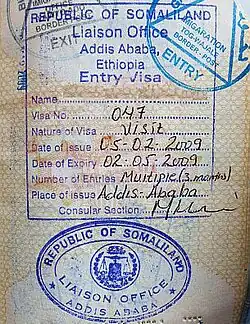 REPUBLIC OF SOMALILAND
Liaison Office
Addis Ababa,
Ethiopia
Entry Visa
EXIT
IMMIGRATION
TOG-WAJALE
BORDER-POST
ENTRY
Name
Visa No. 047
Nature of Visa Visit
Date of issue 05-02-2009
Date of Expiry 02.05-2009
Number of Entries Multiple (3 months)
Place of issue Addis-Ababa
Consular Section
REPUBLIC OF SOMALILAND
LIAISON OFFICE
ADDIS ABABA